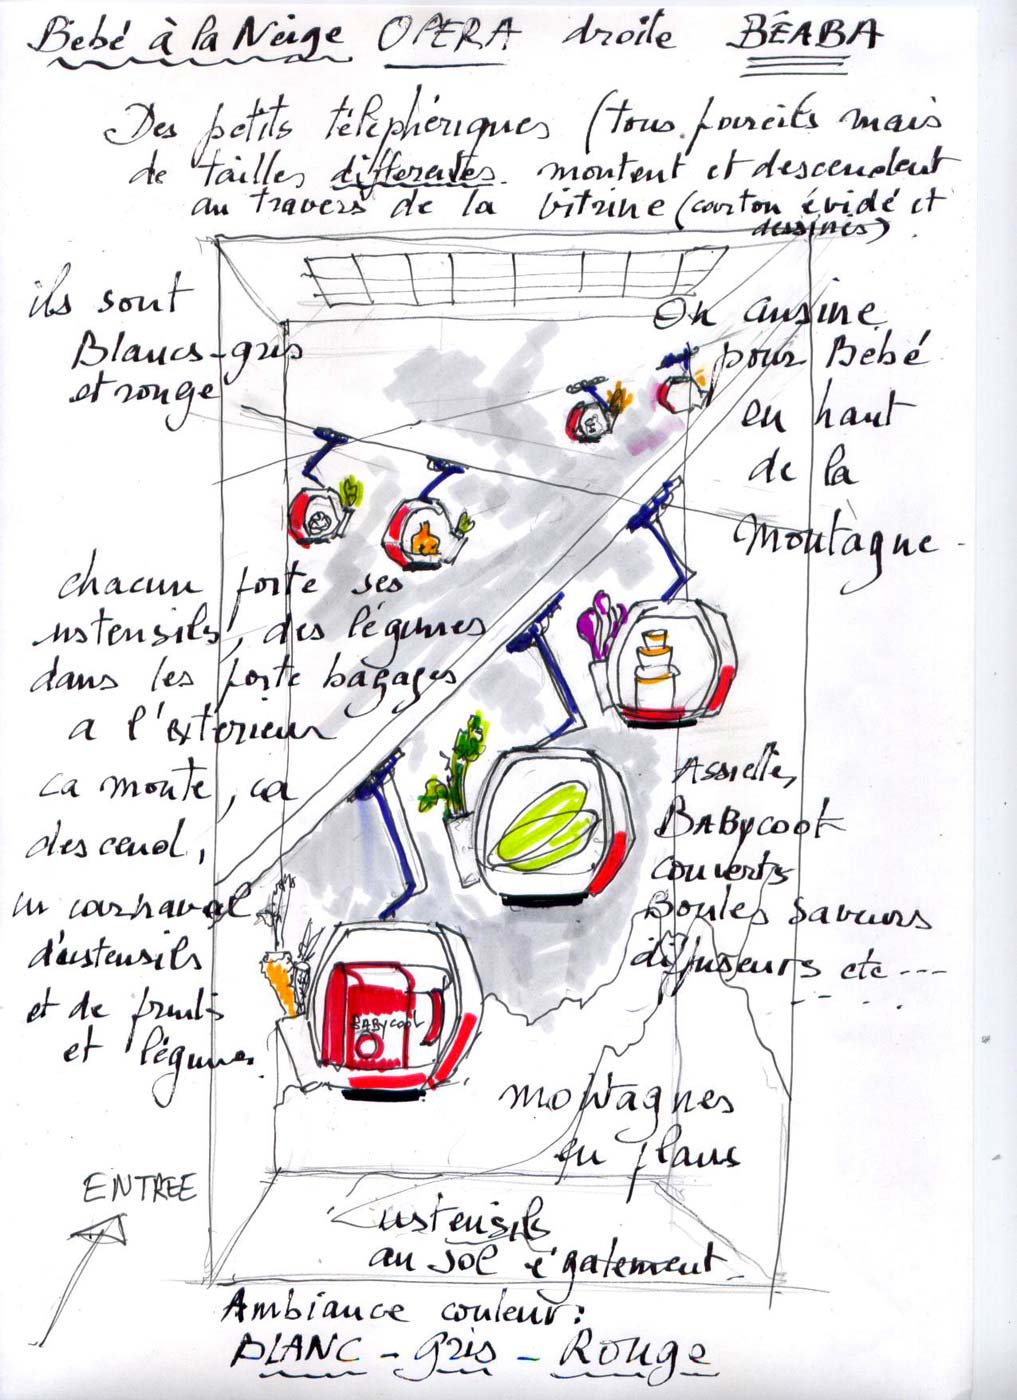 Bébé à la Neige OPERA droite BÉABA
Des petits téléphériques (tous pareils mais
de tailles differentes montent et descendent
au travers de la vitrine (carton évidé et
dessinés).
ils sont
Blancs-gris
et rouge
On cuisine
pour Bébé
en haut
de la
Montagne-
chacun porte ses
ustensils, des légumes
dans les porte bagages
a l'exterieur
ca monte, ca
descend,
un carnaval
d'ustensils
et de fruits
et légumes.
Assiettes,
BABYcook
couverts
Boules saveurs
diffuseurs etc ---
BABYCOOK
montagnes
en plans
ENTREE
ustensils
au sol également-
Ambiance couleur:
BLANC - Gris - Rouge